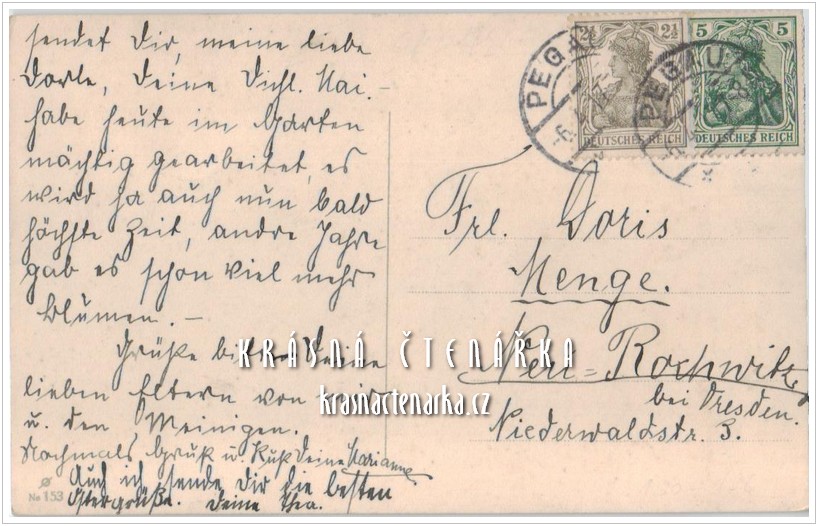 sendet Dir, meine liebe
Dorle, Deine Dichl. Mai. –
habe heute im Garten
mächtig gearbeitet, es
wird ja auch nun bald
höchste Zeit, andre Jahre
gab es schon viel mehr
Blumen. –
Grüße bitte Deine
lieben Eltern von mir
u. den Meinigen.
Nochmals Gruß u. Kuß Deine Marianne
Auch ich sende Dir die besten
Ostergrüße. Deine Thea.
No 153
PEGAU
PEGAU
2½ 2½
DEUTSCHES REICH
5 5
DEUTSCHES REICH
Frl. Doris
Menge.
Neu=Rochwitz
bei Dresden.
Niederwaldstr. 3.
KRÁSNÁ ČTENÁŘKA
krasnactenarka.cz